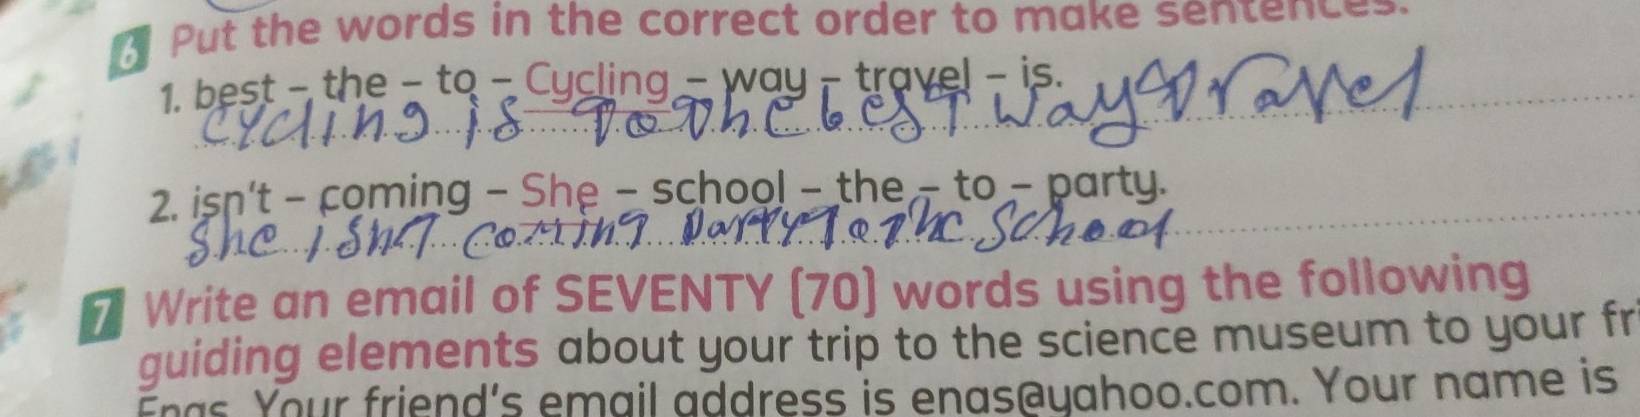 6 Put the words in the correct order to make sentences.
1. best - the - to - Cycling - way - travel - is.
cycling is to the best way travel
2. isn't - coming - She - school - the - to - party.
She isn't coming party to the school
7 Write an email of SEVENTY (70) words using the following
guiding elements about your trip to the science museum to your
Enas. Your friend's email address is enas@yahoo.com. Your name is